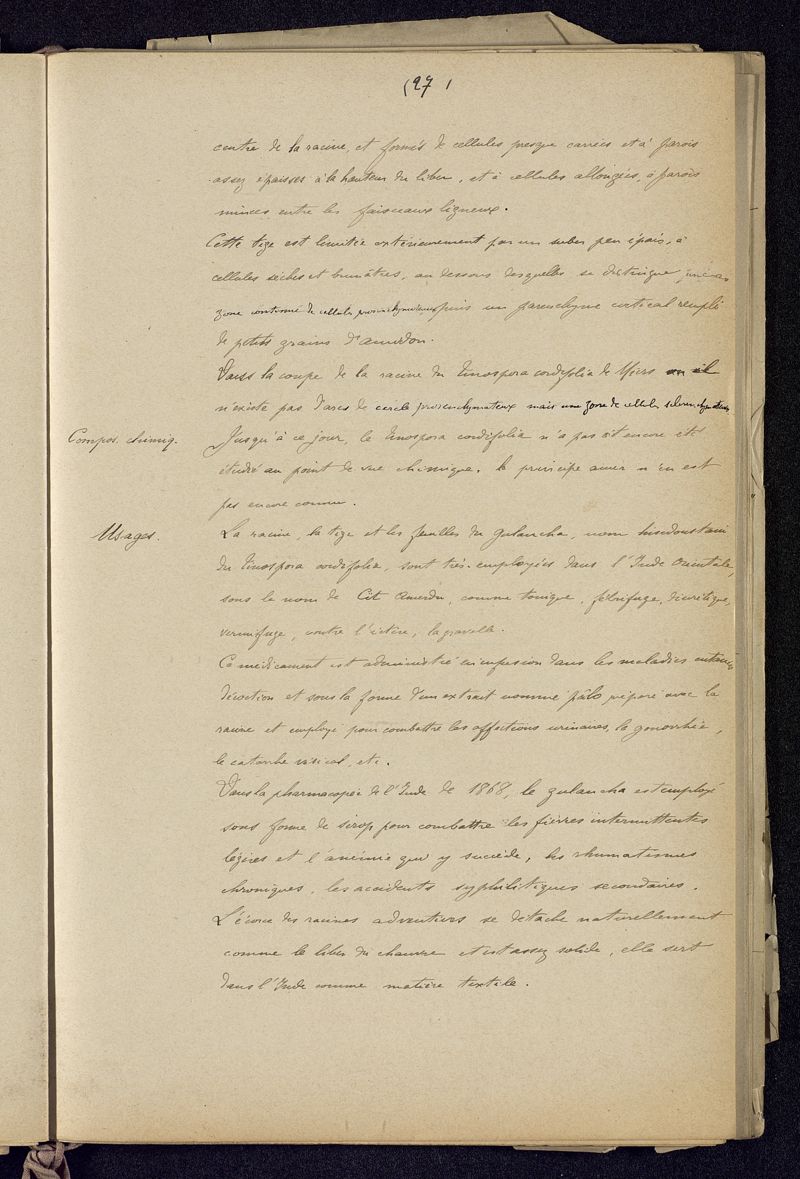 (27)
centre de la racine, et formés de cellules presque carrées et à parois
assez épaisses à la hauteur du liber, et à cellules allongées, à parois
minces entre les faisceaux ligneux.
Cette tige est limitée extérieurement par un suber peu épais, à
cellules sèches et brunâtres, au dessous desquelles se distingue une
zone continue de cellules puis un parenchyme cortical rempli
de petits grains d'amidon.
Dans la coupe de la racine du Tinospora cordifolia de Miers il
n'existe pas d'arcs de cercle prosenchymateux mais une zone de cellules
Compos. chimiq.
Jusqu'à ce jour, le Tinospora cordifolia n'a pas encore été
étudié au point de vue chimique. le principe amer n'en est
pas encore connu.
Usages.
La racine, la tige et les feuilles du gulancha, nom hindoustani
du Tinospora cordifolia, sont très-employées dans l'Inde Orientale,
sous le nom de Cit Amerdu, comme tonique, fébrifuge, diurétique,
vermifuge, contre l'ictère, la gravelle.
Ce médicament est administré en infusion dans les maladies
décoction et sous la forme d'un extrait nommé pâlo préparé avec la
racine et employé pour combattre les affections urinaires, la gonorrhée,
le catarrhe vésical, etc.
Dans la pharmacopée de l'Inde de 1868, le gulancha est employé
sous forme de sirop pour combattre les fièvres intermittentes
légères et l'anémie qui y succède, les rhumatismes
chroniques, les accidents syphilitiques secondaires.
L'écorce des racines adventives se détache naturellement
comme le liber du chanvre et est assez solide, elle sert
dans l'Inde comme matière textile.